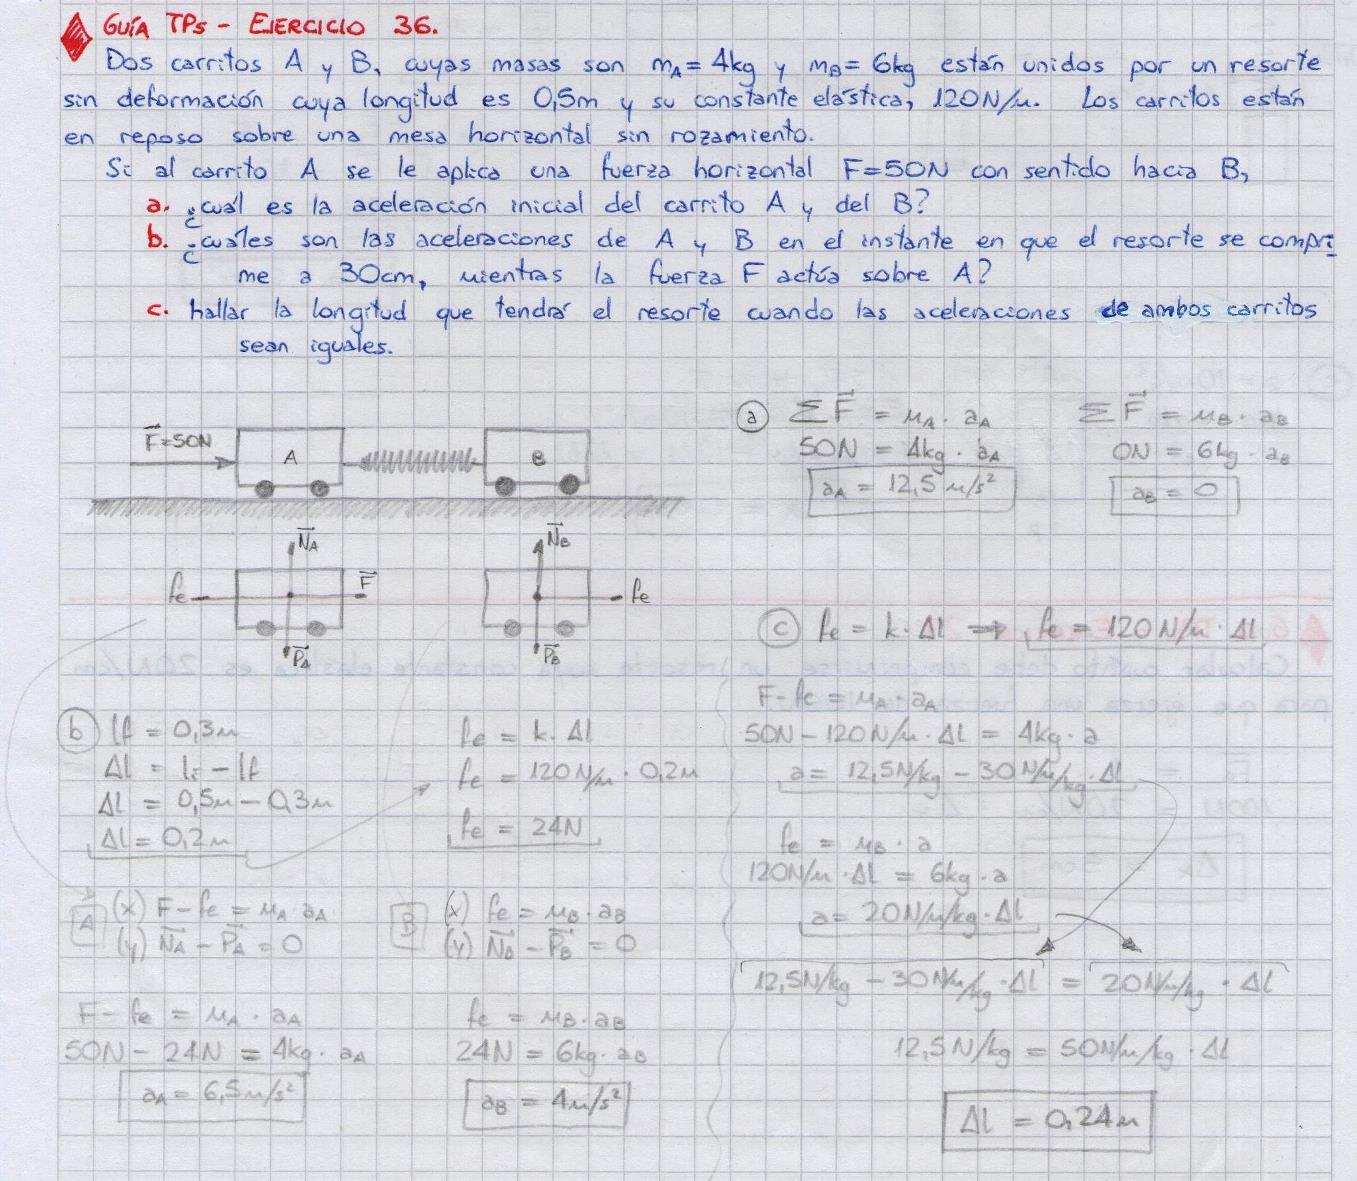 GUÍA TPs - EJERCICIO 36.
Dos carritos A y B, cuyas masas son mA= 4kg y mB= 6kg están unidos por un resorte
sin deformación cuya longitud es 0,5m y su constante elástica, 120N/m. Los carritos están
en reposo sobre una mesa horizontal sin rozamiento.
Si al carrito A se le aplica una fuerza horizontal F=50N con sentido hacia B,
a. ¿cuál es la aceleración inicial del carrito A y del B?
b. ¿cuáles son las aceleraciones de A y B en el instante en que el resorte se compri
me a 30cm, mientras la fuerza F actúa sobre A?
c. hallar la longitud que tendrá el resorte cuando las aceleraciones de ambos carritos
sean iguales.
F=50N
A
B
NA
fe
F
PA
NB
fe
PB
a ΣF = mA . aA
50N = 4kg . aA
aA = 12,5 m/s²
ΣF = mB . aB
0N = 6kg . aB
aB = 0
b lf = 0,3m
Δl = li - lf
Δl = 0,5m - 0,3m
Δl = 0,2m
fe = k. Δl
fe = 120N/m . 0,2m
fe = 24N
A (x) F-fe = mA . aA
(y) NA - PA = 0
B (x) fe = mB . aB
(y) NB - PB = 0
F - fe = mA . aA
50N - 24N = 4kg . aA
aA = 6,5m/s²
fe = mB . aB
24N = 6kg . aB
aB = 4m/s²
c fe = k. Δl ⇒ fe = 120N/m . Δl
F-fe = mA . aA
50N - 120N/m . Δl = 4kg . a
a = 12,5N/kg - 30N/m/kg . Δl
fe = mB . a
120N/m . Δl = 6kg . a
a = 20N/m/kg . Δl
12,5N/kg - 30N/m/kg . Δl = 20N/m/kg . Δl
12,5N/kg = 50N/m/kg . Δl
Δl = 0,24m